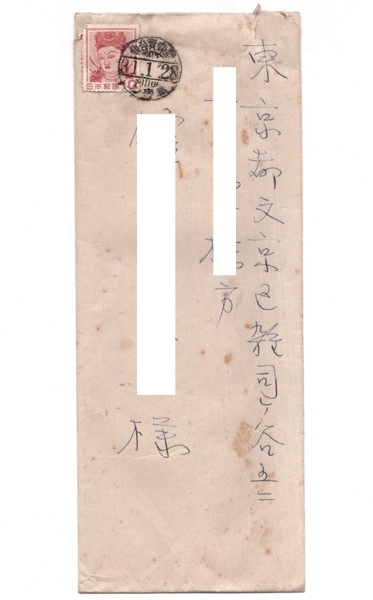 東京都文京区雑司ヶ谷五二
方
様
日本郵便
31.1.28